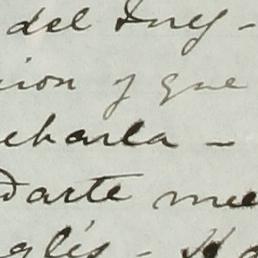 del Ing-
cion y que
echarla -
darte me
glés -